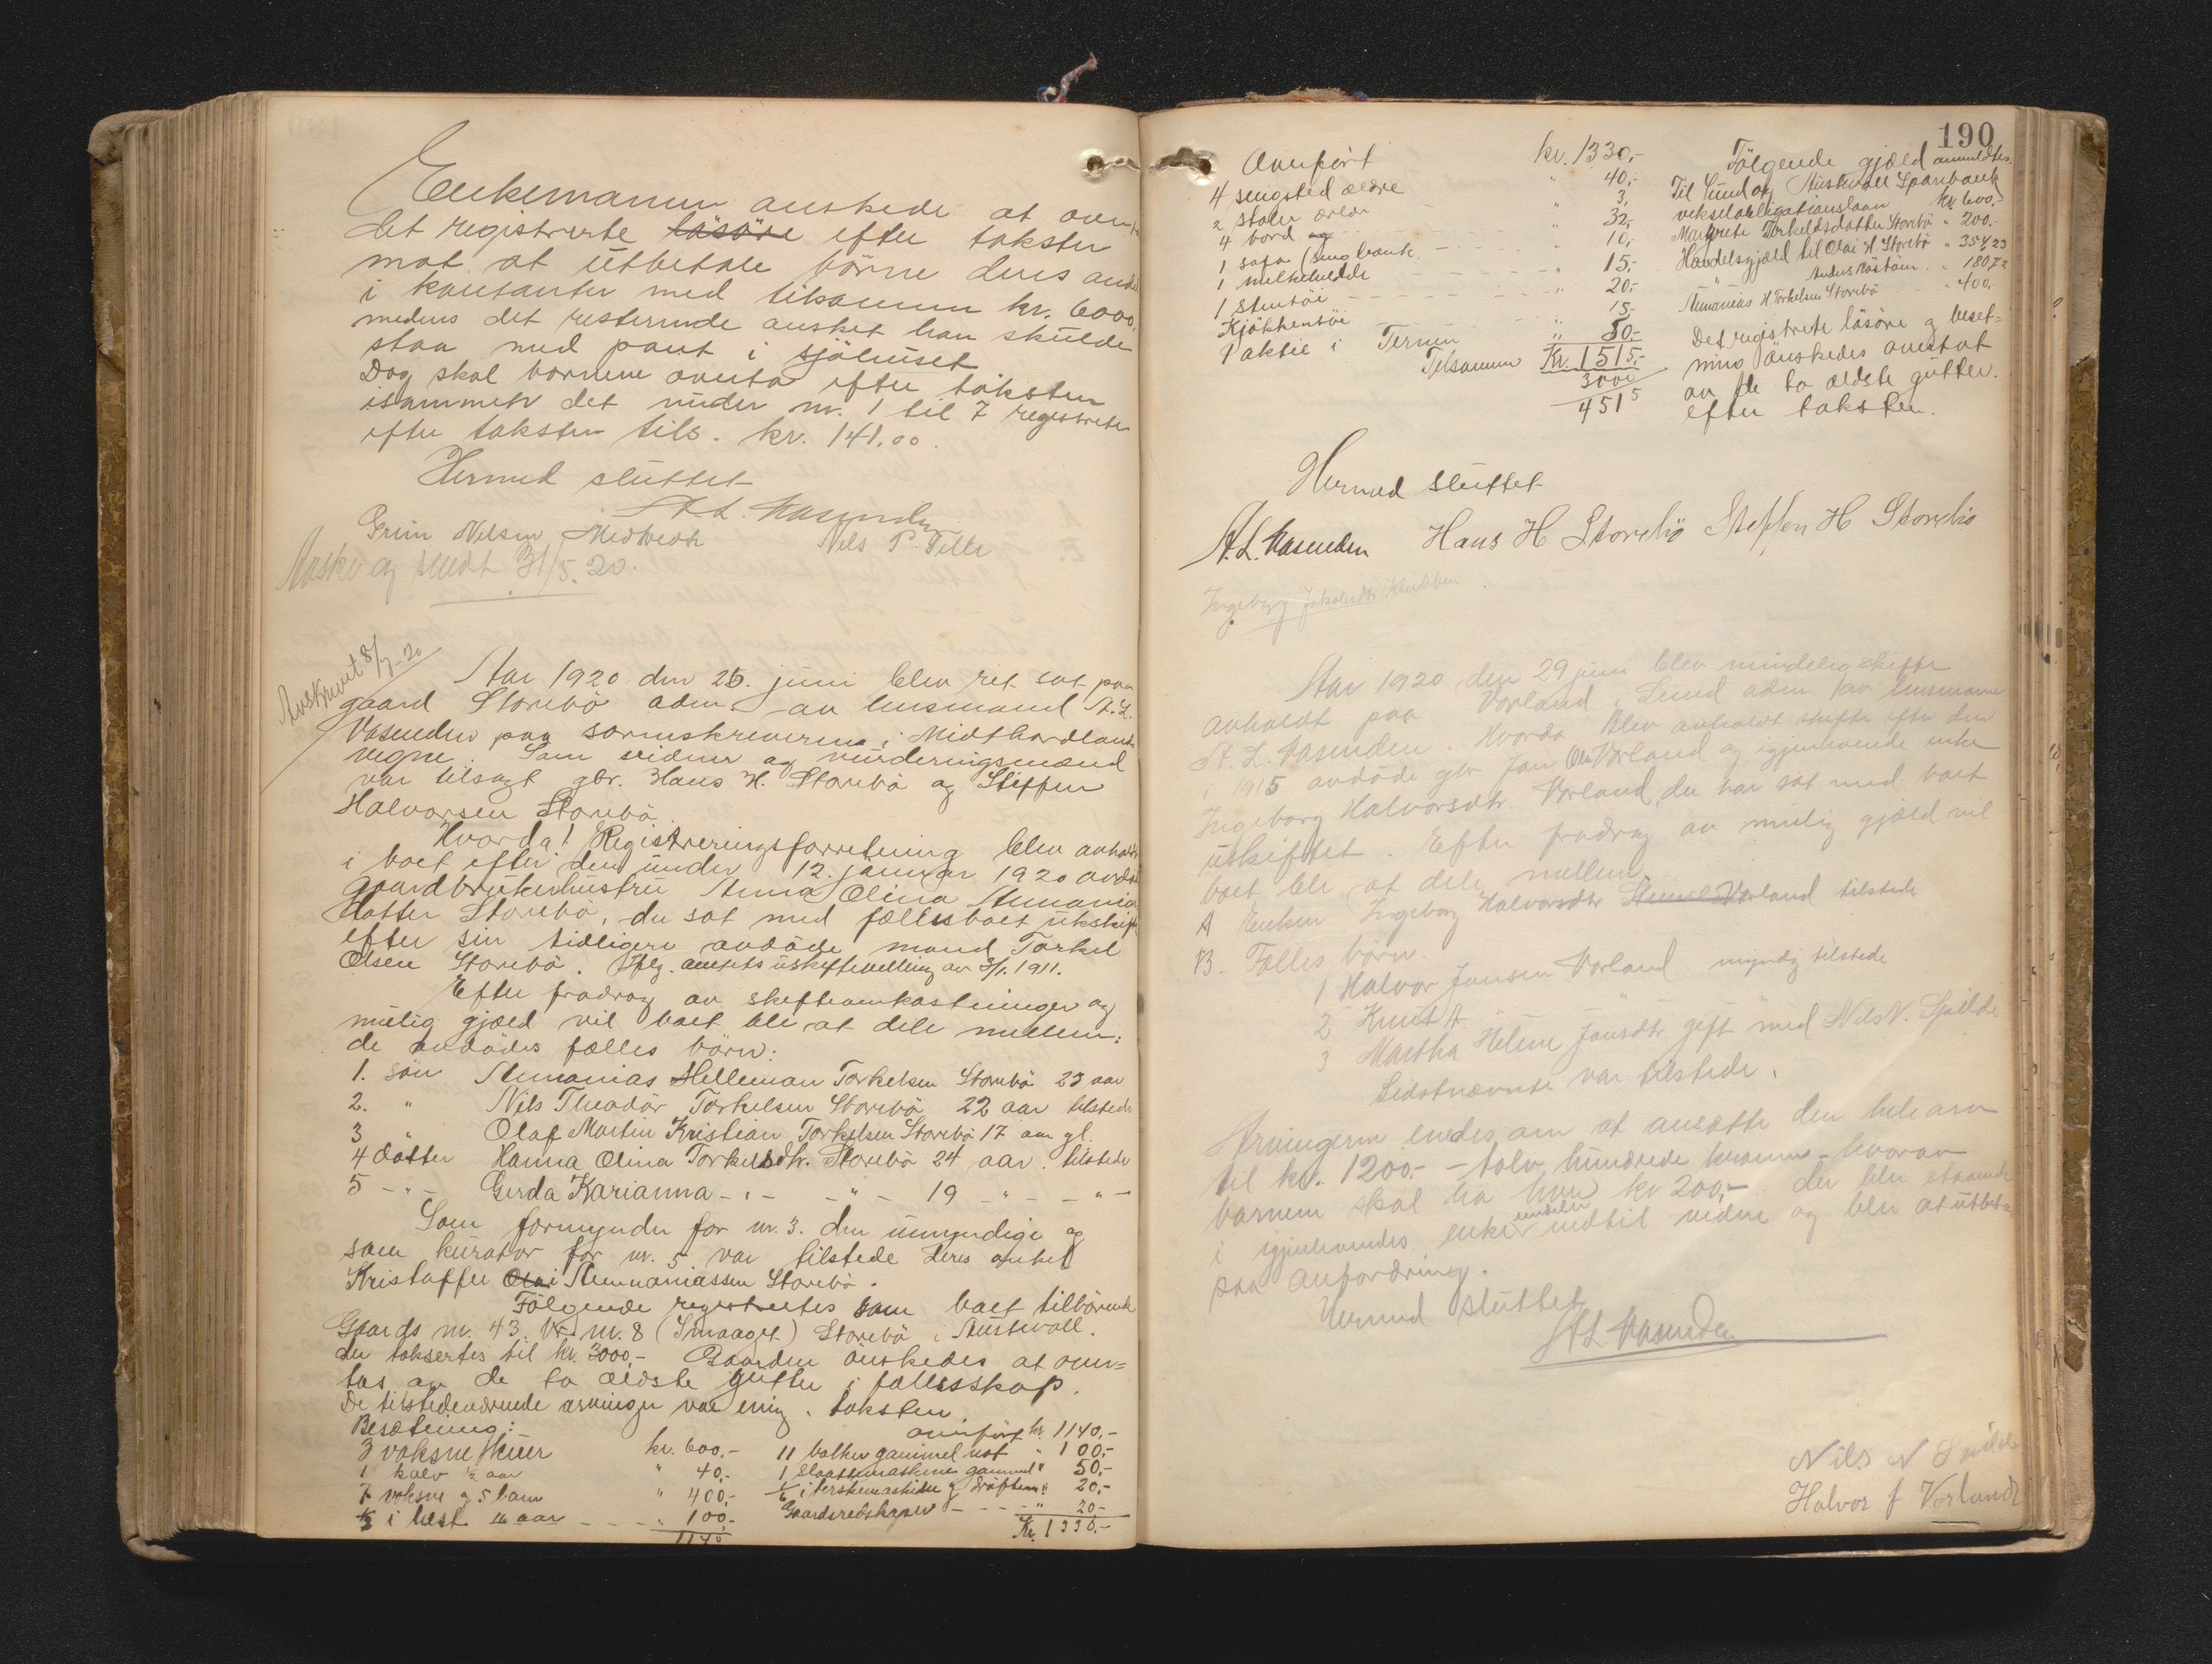 Enkemannen önskede at overta
det registrerte lösöre efter taksten
mot at utbetale börne deres andel
i kontanter med tilsammen kr. 6000,
medens det resterende önsket han skulde
staa med pant i sjöhuset
Dog skal barnene overta efter taksten
isammen det under nr. 1 til 7 registrete
efter taksten tils. kr. 141,00.
Hermed sluttet
A.L. Vasenden
Grim Nilsen Midtvedt Nils P.
Avskr og sendt 31/5. 20.
Avskrevet 8/7-20
Aar 1920 den 26. juni blev ret sat paa
gaard Storebö adm. av lensmand A.L.
Vasenden paa sorenskriveren i Midthordlands
vegne. Som vidner og vurderingsmænd
var tilsagt gbr. Hans H. Storebö og Steffen
Halvorsen Storebö.
Hvorda! Registreringsforretning blev avholdt
i boet efter den under 12. januar 1920 avdöde
gaardbrukerhustru Anna Olina Ananias
datter Storebö, der sat med fællesboet uskiftet
efter sin tidligere avdöde mand Torkel
Olsen Storebö. Iflg. amtets uskiftevilling av 3/1. 1911.
Efter fradrag av skifteomkostninger og
mulig gjæld vil boet bli at dele mellem:
de avdödes fælles börn:
1. sön Ananias Helleman Torkelsen Storebö 23 aar
2. " Nils Theodor Torkelsen Storebö 22 aar tilstede
3 " Olaf Martin Kristian Torkelsen Storebö 17 aar gl.
4 datter Hanna Olina Torkelsdtr. Storebö 24 aar. tilstede
5 - " - Gerda Karianna - " - - " - 19 - " - - " -
Som formynder for nr. 3. den umyndige og
som kurator for nr. 5 var tilstede deres onkel
Kristoffer Olai Ananiassen Storebö.
Fölgende registrertes som boet tilhörende
Gaards nr. 43 br. nr. 8 (Smaaget) Storebö i Austevoll.
der taksertes til kr. 3000,- Gaarden önskedes at over=
tas av de to ældste gutter i fællesskap.
De tilstedeværende arvinger var enig i taksten.
Besætning: overfört kr. 1140,-
3 voksne kuer kr. 600,- 11 bolker gammel not " 100,-
1 kalv ½ aar " 40,- 1 slaattemaskine gammel " 50,-
7 voksne og 5 lam " 400,- 1/6 i terskemaskine og dröftem. " 20,-
½ i hest 16 aar - - - " 100,- Gaardsredskaper - - - " 20,-
1140 Kr. 1330,-
190
Overfört kr. 1330,-
4 sengsted ældre " 40,-
2 stoler ældre " 3,
4 bord " 32,-
1 sofa (seng benk " 10,-
1 melkehelde " 15,-
1 stentöi " 20,-
Kjökkentöi " 15,-
1 aktie i Ternen " 50,-
Tilsammen Kr. 1515,-
3000
4515
Fölgende gjæld anmeldtes
Til Sund og Austevoll Sparebank
vekselobligationslaan kr 600,-
Margrete Torkeldsdatter Storebö " 200.-
Handelsgjæld til Olai H. Storebö " 354 23
" Anders Röstöen " 180 72
Ananias H. Torkelsen Storebö " 400,
Det registrete lösöre og beset=
ning önskedes overtat
av de to ældste gutter.
efter taksten.
Hermed sluttet
A.L. Vasenden Hans H Storebö Steffen H Storebö
Ingeborg Jakobsdtr
Aar 1920 den 29 juni blev mindelig skifte
avholdt paa Vorland i Sund adm. av lensmann
A. L. Vasenden. Hvorda blev avholdt skifte efter den
i 1915 avdöde gbr Jan Ols Vorland og igjenlevende enke
Ingeborg Halvorsdtr. Vorland, der har sat med boet
uskiftet. Efter fradrag av mulig gjæld vil
boet bli at dele mellem:
A Enken Ingeborg Halvorsdtr Vorland tilstede
B. Fælles börn.
1 Halvor Jansen Vorland myndig tilstede
2 Knut A " " "
3 Martha Helene Jansdtr. gift med Nils N. Spilde
Sidstnævnte var tilstede.
Arvingerne enedes om at ansætte den hele arv
til kr. 1200.- - tolv hundrede kroner - hvorav
barnene skal ha hver kr 200,- der blir staaende
i igjenlevendes enke eiendeler indtil videre og blir at utbetale
paa anfordring.
Hermed sluttet
A L Vasenden
Nils N Spilde
Halvor J Vorland